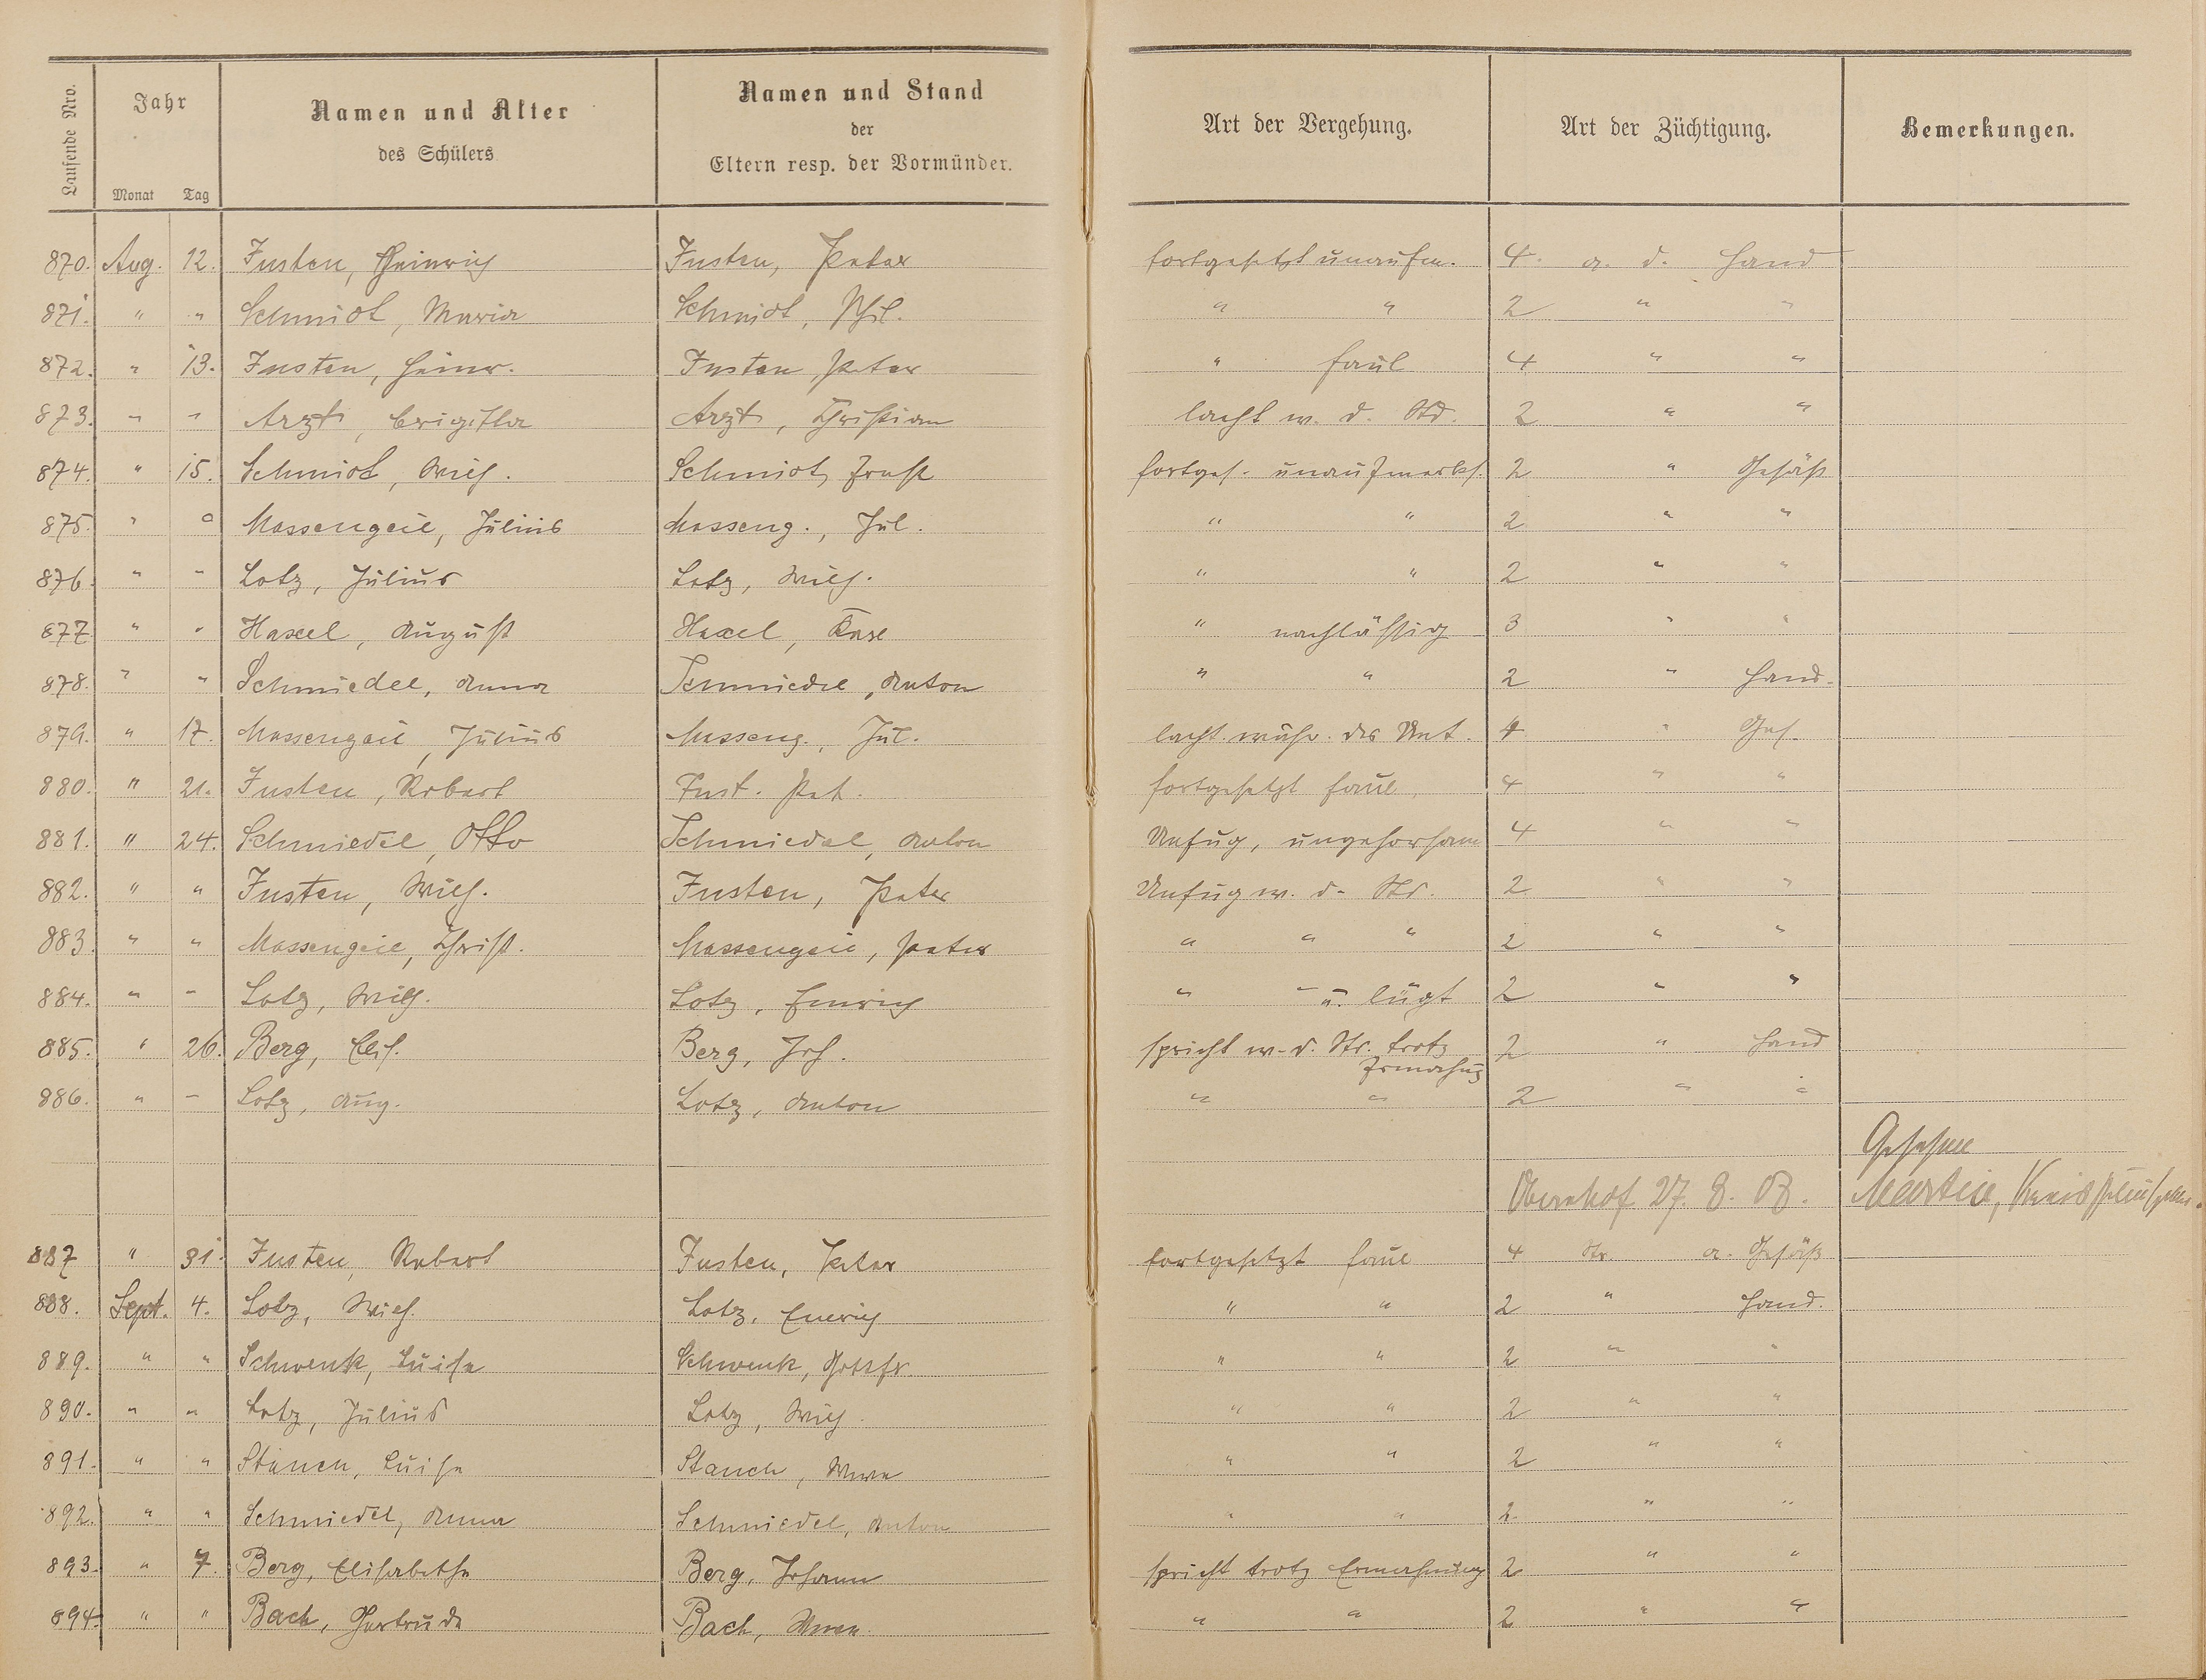 Laufende Nro. Jahr Namen und Alter Namen und Stand Art der Vergehung. Art der Züchtigung. Bemerkungen.
der
des Schülers
Eltern resp. der Vormünder.
Monat Tag
870. Aug. 12. Fusten, Heinrich Fusten, Peter fortgesetzt unaufm. 4. a. d. Hand
871. " " Schmidt, Maria Schmidt, Phil. " " 2 " "
872. " 13. Fusten, Heinr. Fusten, Peter " faul 4 " "
873. " " Arzt, Brigitta Arzt, Christian lacht w. d. Std. 2 " "
874. " 15. Schmidt, Wilh. Schmidt, Ernst fortges. unaufmerks. 2 " Gesäß
875. " " Massengeil, Julius Masseng., Jul. " " 2 " "
876. " " Lotz, Julius Lotz, Wilh. " " 2 " "
877 " " Haxel, August Haxel, " nachlässig 3 " "
878. " " Schmiedel, Anna Schmiedel, Anton " " 2 " Hand.
879. " 17. Massengeil, Julius Masseng., Jul. lacht währ. des Unt. 4 " Ges.
880. " 21. Fusten, Robert Fust. Pet. fortgesetzt faul. 4 " "
881. " 24. Schmiedel, Otto Schmiedel, Anton Unfug, ungehorsam 4 " "
882. " " Fusten, Wilh. Fusten, Peter Unfug w. d. Std. 2 " "
883. " " Massengeil, Christ. Massengeil, Peter " " " 2 " "
884. " " Lotz, Wilh. Lotz, Emrich " " u. lügt 2 " "
885. " 26. Berg, Elis. Berg, Joh. spricht w. d. Std. trotz 2 " Hand
Ermahng
886. " " Lotz, Aug. Lotz, Anton " " 2 " "
Gesehen
Obernhof 27. 8. 08. Martin, Kreisschulinspektor.
887 " 31. Fusten, Robert Fusten, Peter fortgesetzt faul 4 Str. a. Gesäß
888. Sept. 4. Lotz, Wilh. Lotz, Emrich " " 2 " Hand.
889. " " Schwenk, Luise Schwenk, Gottfr. " " 2 " "
890. " " Lotz, Julius Lotz, Wilh. " " 2 " "
891. " " Stauch, Luise Stauch, Wwe " " 2 " "
892. " " Schmiedel, Anna Schmiedel, Anton " " 2. " "
893. " 7. Berg, Elisabethe Berg, Johann spricht trotz Ermahnung 2 " "
894. " " Bach, Gertrude Bach, " " 2 " "